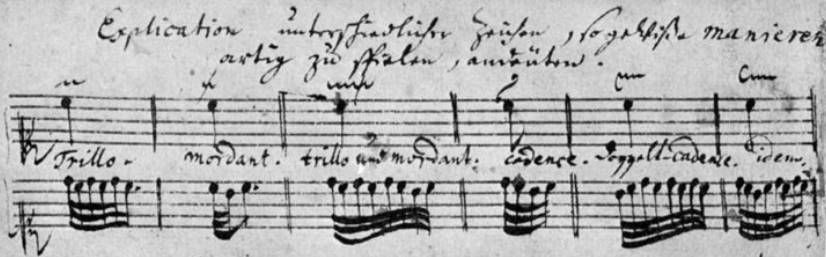 Explication unterschiedlicher Zeichen, so gewiße manieren
artig zu spielen, andeuten.
Trillo. mordant. trillo und mordant. cadence. Doppelt-cadence. idem.